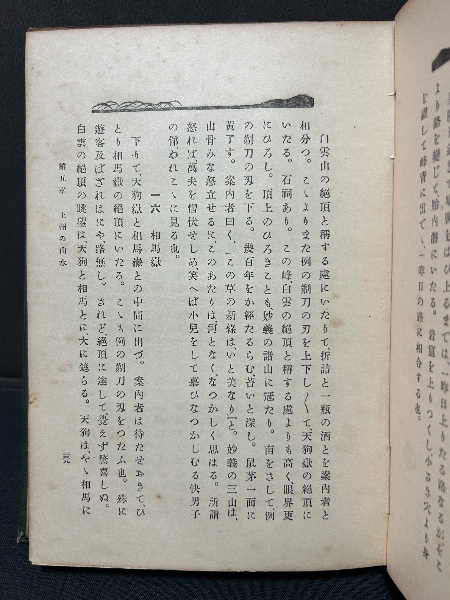 より路を絶じて胎内潛にいたる。岩窟を上りつくし小さき穴より身
を逃して峰背に出て、一昨日の路に相合する也。
白雲山の絶頂と稱する處にいたりて、折詰と一瓶の酒とを案內者と
相分つ。こゝよりまた例の剃刀の刃を上下し〳〵て、天狗嶽の絶頂に
いたる。石祠あり。この峰白雲の絶頂と稱する處よりも高く眼界更
にひろし。頂上のひろきことも、妙義の諸山に冠たり。南をさして例
の剃刀の刃を下る。幾百年をか經たるらむ、苔いと深し。鼠茅一面に
黃了す。案內者曰く、「この草の新綠は、いと美なり」と。妙義の三山は、
山骨みな怒立せるに、このあたりは、何となく、なつかしく思はる。所謂
怒れば、萬夫を慴伏せしめ、笑へば小兒をして喜びなつかしむる快男子
の俤われこゝに見る也。
一六　相馬嶽
下りて、天狗嶽と相馬嶽との中間に出づ。案內者は待たせおきて、ひ
とり相馬嶽の絶頂にいたる。こゝも例の剃刀の刃をつたふ也。殊に
遊客及ばざればにや路無し。されど、絶頂に達して覺えず驚喜しぬ。
白雲の絶頂の眺望は天狗と相馬とに、大に劣らる。天狗は、やゝ相馬に
第五章　上州の山水